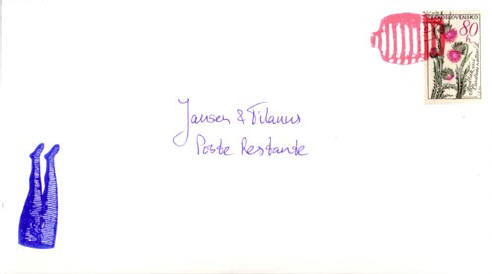 80
h
Jansen & Tilanus
Poste Restante